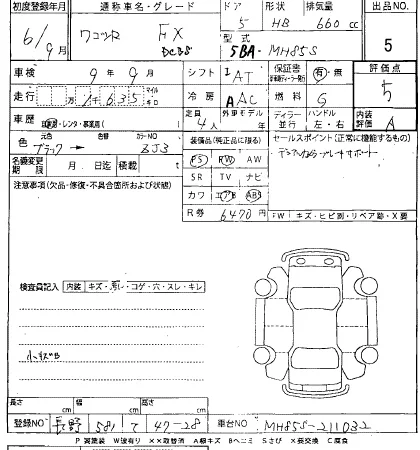 初度登録年月 通称車名・グレード ドア 形状 排気量 出品NO
6/9月 ワゴンR FX 5 HB 660 cc 5
DCBS 型式 5BA-MH85S
車検 9年9月 シフト IAT 保証書 有・無 評価点
走行 万1千635 マイル キロ 冷房 AAC 燃料 G 5
車歴 自家用・レンタ・事業用( ) 定員 4人 外車モデル 年 ディーラー 並行 ハンドル 左・右 内装評価 A
元色 色替 カラーNO 装備品(純正品に限る) セールスポイント(正常に機能するもの)
色 ブラック ZJ3 PS PW AW
名義変更期限 月 日迄 積載 t SR TV ナビ
注意事項(欠品・修復・不具合箇所および状態) カワ エアB ABS
R券 6470円 FW キズ・ヒビ割・リペア跡・X要
検査員記入 内装 キズ・汚レ・コゲ・穴・スレ・キレ
小キズB
長さ cm 幅 cm 高さ cm
登録NO 長野 581 て 47-28 車台NO MH85S-211032
P 要塗装 W波有り XX取替済 A線キズ Bヘコミ Sさび X要交換 C腐食